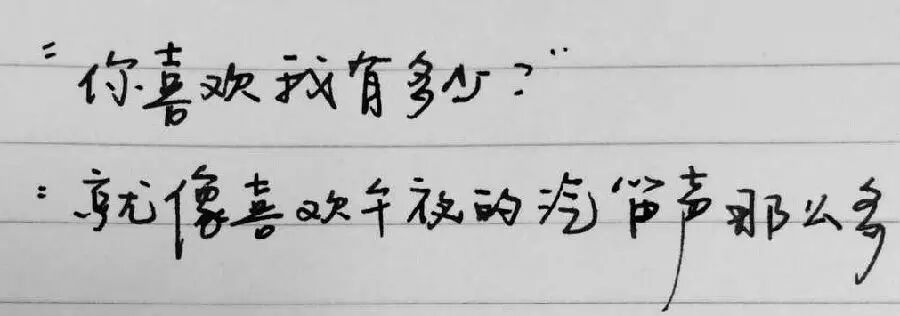 "你喜欢我有多少？"
：就像喜欢午夜的汽笛声那么多